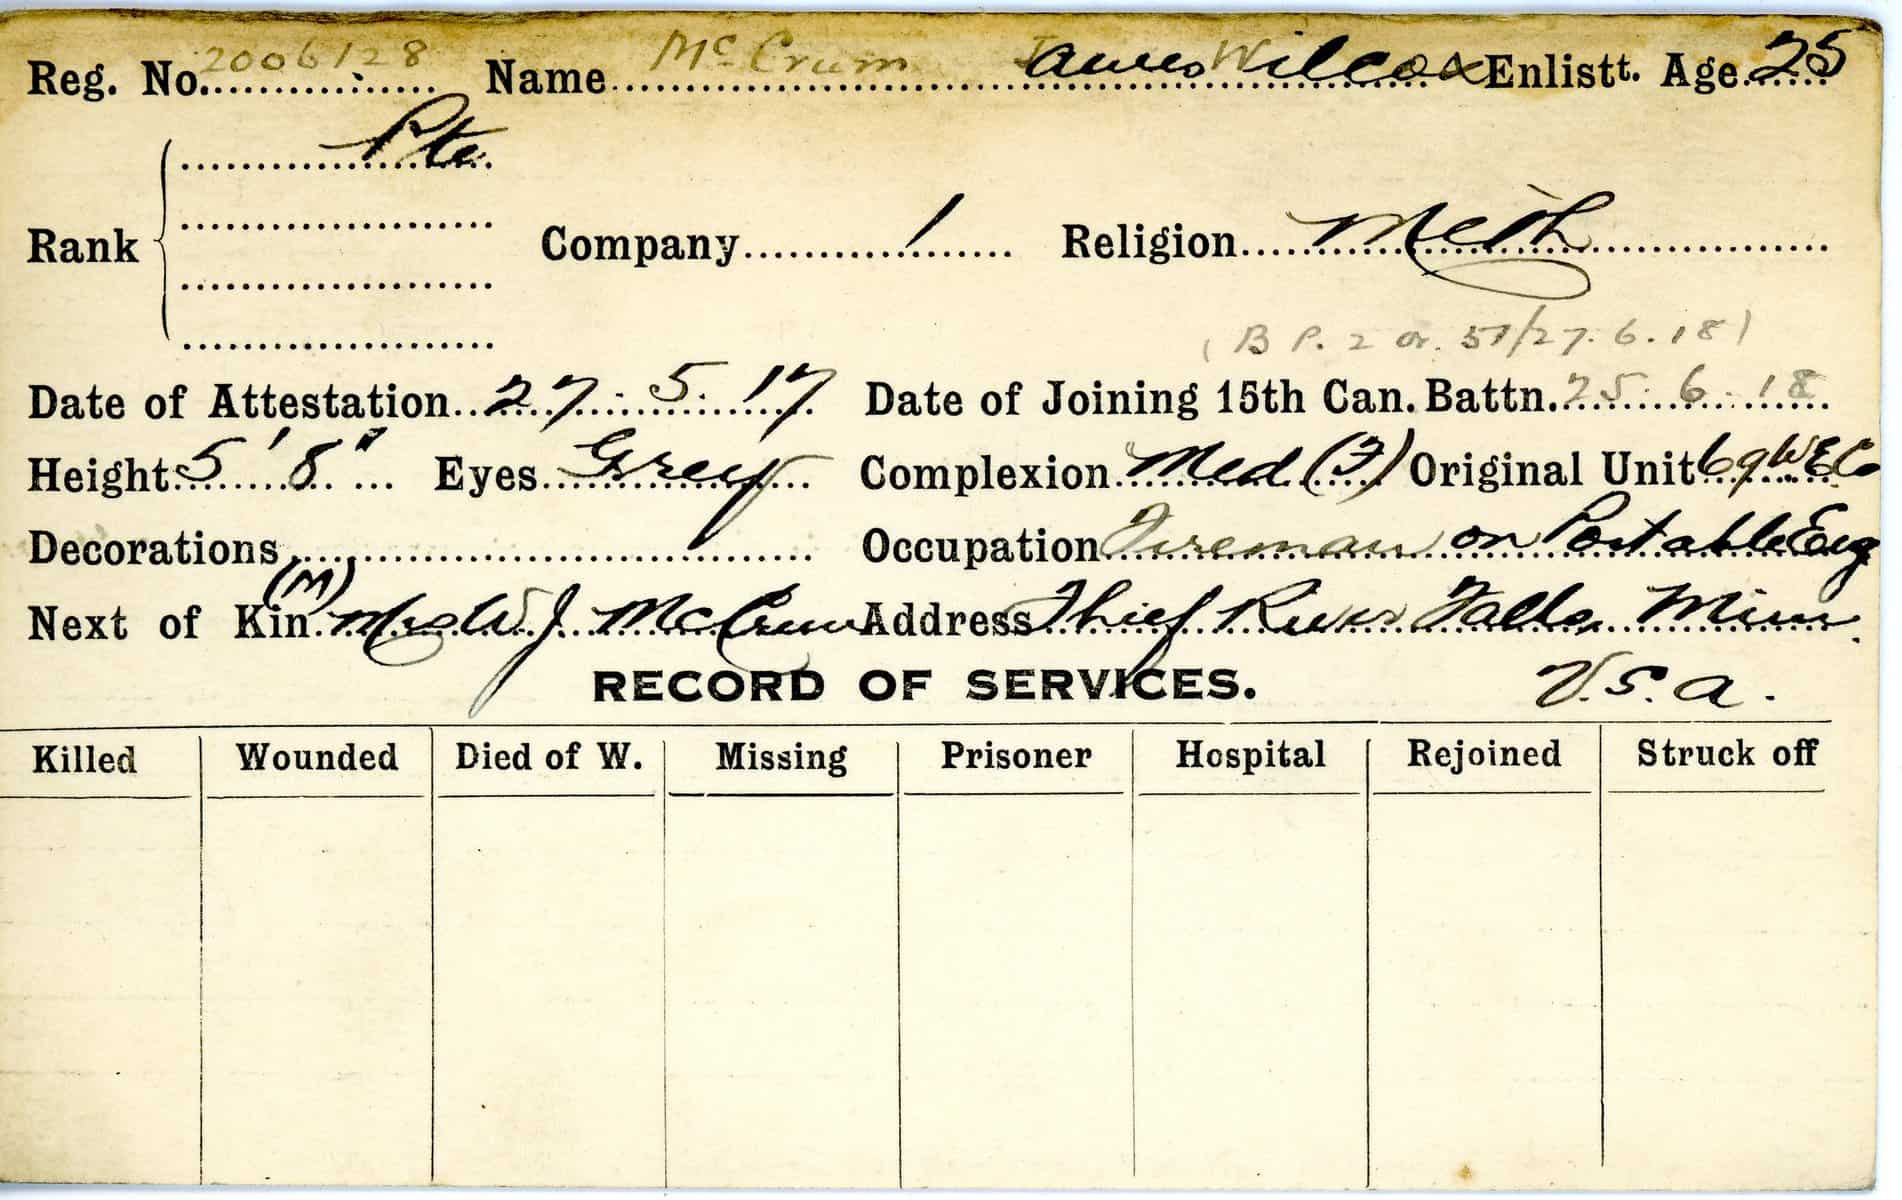 Reg. No. 2006128 Name McCrum James Wilcox Enlistt. Age 25
Pte
Rank Company 1 Religion Meth
(B P. 2 Or. 57/27.6.18)
Date of Attestation 27.5.17 Date of Joining 15th Can. Battn. 25.6.18
Height 5'8" Eyes Grey Complexion Med (F) Original Unit
Decorations Occupation Fireman on Portable Eng
(M)
Next of Kin Mrs W J McCrum Address Thief River Falls Minn.
RECORD OF SERVICES. U.S.A.
Killed Wounded Died of W. Missing Prisoner Hospital Rejoined Struck off